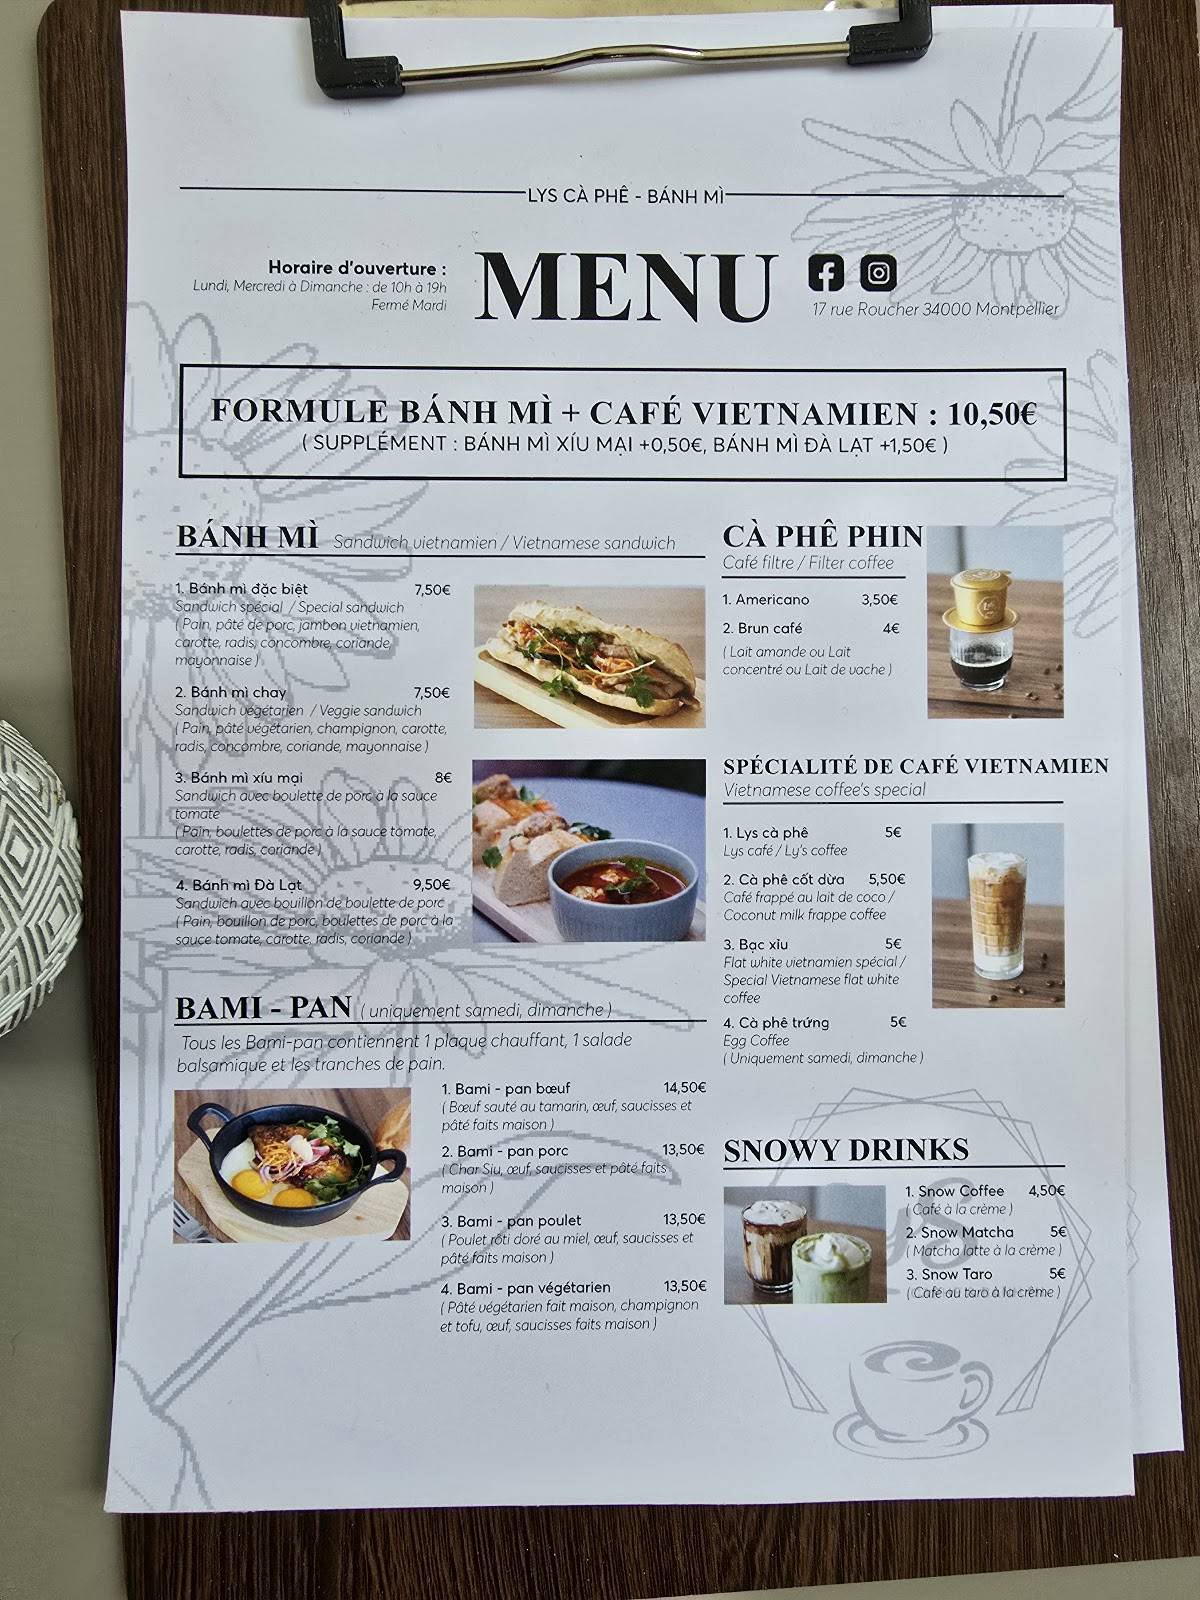 LYS CÀ PHÊ - BÁNH MÌ
Horaire d'ouverture :
Lundi, Mercredi à Dimanche : de 10h à 19h
Fermé Mardi
MENU
17 rue Roucher 34000 Montpellier
FORMULE BÁNH MÌ + CAFÉ VIETNAMIEN : 10,50€
( SUPPLÉMENT : BÁNH MÌ XÍU MẠI +0,50€, BÁNH MÌ ĐÀ LẠT +1,50€ )
BÁNH MÌ Sandwich vietnamien / Vietnamese sandwich
1. Bánh mì đặc biệt 7,50€
Sandwich spécial / Special sandwich
( Pain, pâté de porc, jambon vietnamien,
carotte, radis, concombre, coriande,
mayonnaise )
2. Bánh mì chay 7,50€
Sandwich végétarien / Veggie sandwich
( Pain, pâté végétarien, champignon, carotte,
radis, concombre, coriande, mayonnaise )
3. Bánh mì xíu mại 8€
Sandwich avec boulette de porc à la sauce
tomate
( Pain, boulettes de porc à la sauce tomate,
carotte, radis, coriande )
4. Bánh mì Đà Lạt 9,50€
Sandwich avec bouillon de boulette de porc
( Pain, bouillon de porc, boulettes de porc à la
sauce tomate, carotte, radis, coriande )
BAMI - PAN ( uniquement samedi, dimanche )
Tous les Bami-pan contiennent 1 plaque chauffant, 1 salade
balsamique et les tranches de pain.
1. Bami - pan bœuf 14,50€
( Bœuf sauté au tamarin, œuf, saucisses et
pâté faits maison )
2. Bami - pan porc 13,50€
( Char Siu, œuf, saucisses et pâté faits
maison )
3. Bami - pan poulet 13,50€
( Poulet rôti doré au miel, œuf, saucisses et
pâté faits maison )
4. Bami - pan végétarien 13,50€
( Pâté végétarien fait maison, champignon
et tofu, œuf, saucisses faits maison )
CÀ PHÊ PHIN
Café filtre / Filter coffee
1. Americano 3,50€
2. Brun café 4€
( Lait amande ou Lait
concentré ou Lait de vache )
SPÉCIALITÉ DE CAFÉ VIETNAMIEN
Vietnamese coffee's special
1. Lys cà phê 5€
Lys café / Ly's coffee
2. Cà phê cốt dừa 5,50€
Café frappé au lait de coco /
Coconut milk frappe coffee
3. Bạc xỉu 5€
Flat white vietnamien spécial /
Special Vietnamese flat white
coffee
4. Cà phê trứng 5€
Egg Coffee
( Uniquement samedi, dimanche )
SNOWY DRINKS
1. Snow Coffee 4,50€
( Café à la crème )
2. Snow Matcha 5€
( Matcha latte à la crème )
3. Snow Taro 5€
( Café au taro à la crème )